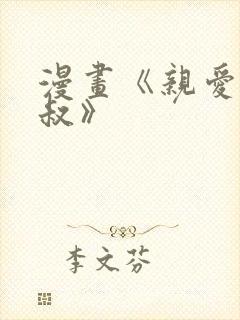 漫畫《親愛
叔》
李文芬